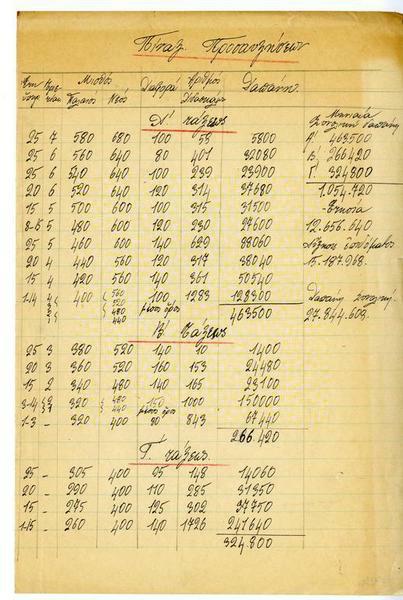 Πίναξ Προσαυξήσεων
Μισθός Διαφορά Αριθμός Δαπάνη
Παλαιός Νέος Διδασκάλων
Α' τάξεως
25 7 580 680 100 58 5800
25 6 560 640 80 401 32080
25 6 540 640 100 239 23900
20 6 520 640 120 314 37680
15 5 500 600 100 315 31500
8-6 5 480 600 120 230 27600
25 5 460 600 140 629 88060
20 4 440 560 120 317 38040
15 4 420 560 140 361 50540
1-14 4 400 560 100 1283 128300
520
480 μέσος όρος
440 463500
Β' τάξεως
25 3 380 520 140 10 1400
20 3 360 520 160 153 24480
15 2 340 480 140 165 23100
3-14 2 320 480 150 1000 150000
440 μέσος όρος
1-3 - 320 400 80 843 67440
266.420
Γ' τάξεως
25 - 305 400 95 148 14060
20 - 290 400 110 285 31350
15 - 275 400 125 302 37750
1-15 - 260 400 140 1726 241640
324.800
Μηνιαία
συνολική δαπάνη
Α' 463500
Β' 266420
Γ' 324800
1.054.720
Ετησία
12.656.640
15.187.968
Δαπάνη συνολική
27.844.608